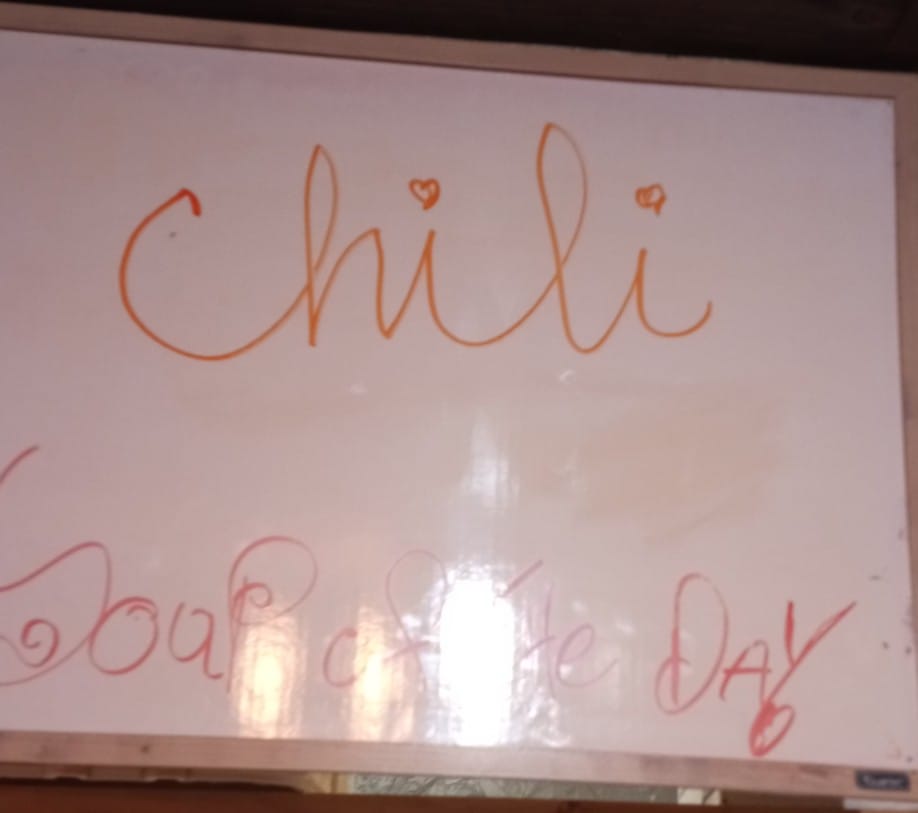 Chili
Soup of the Day